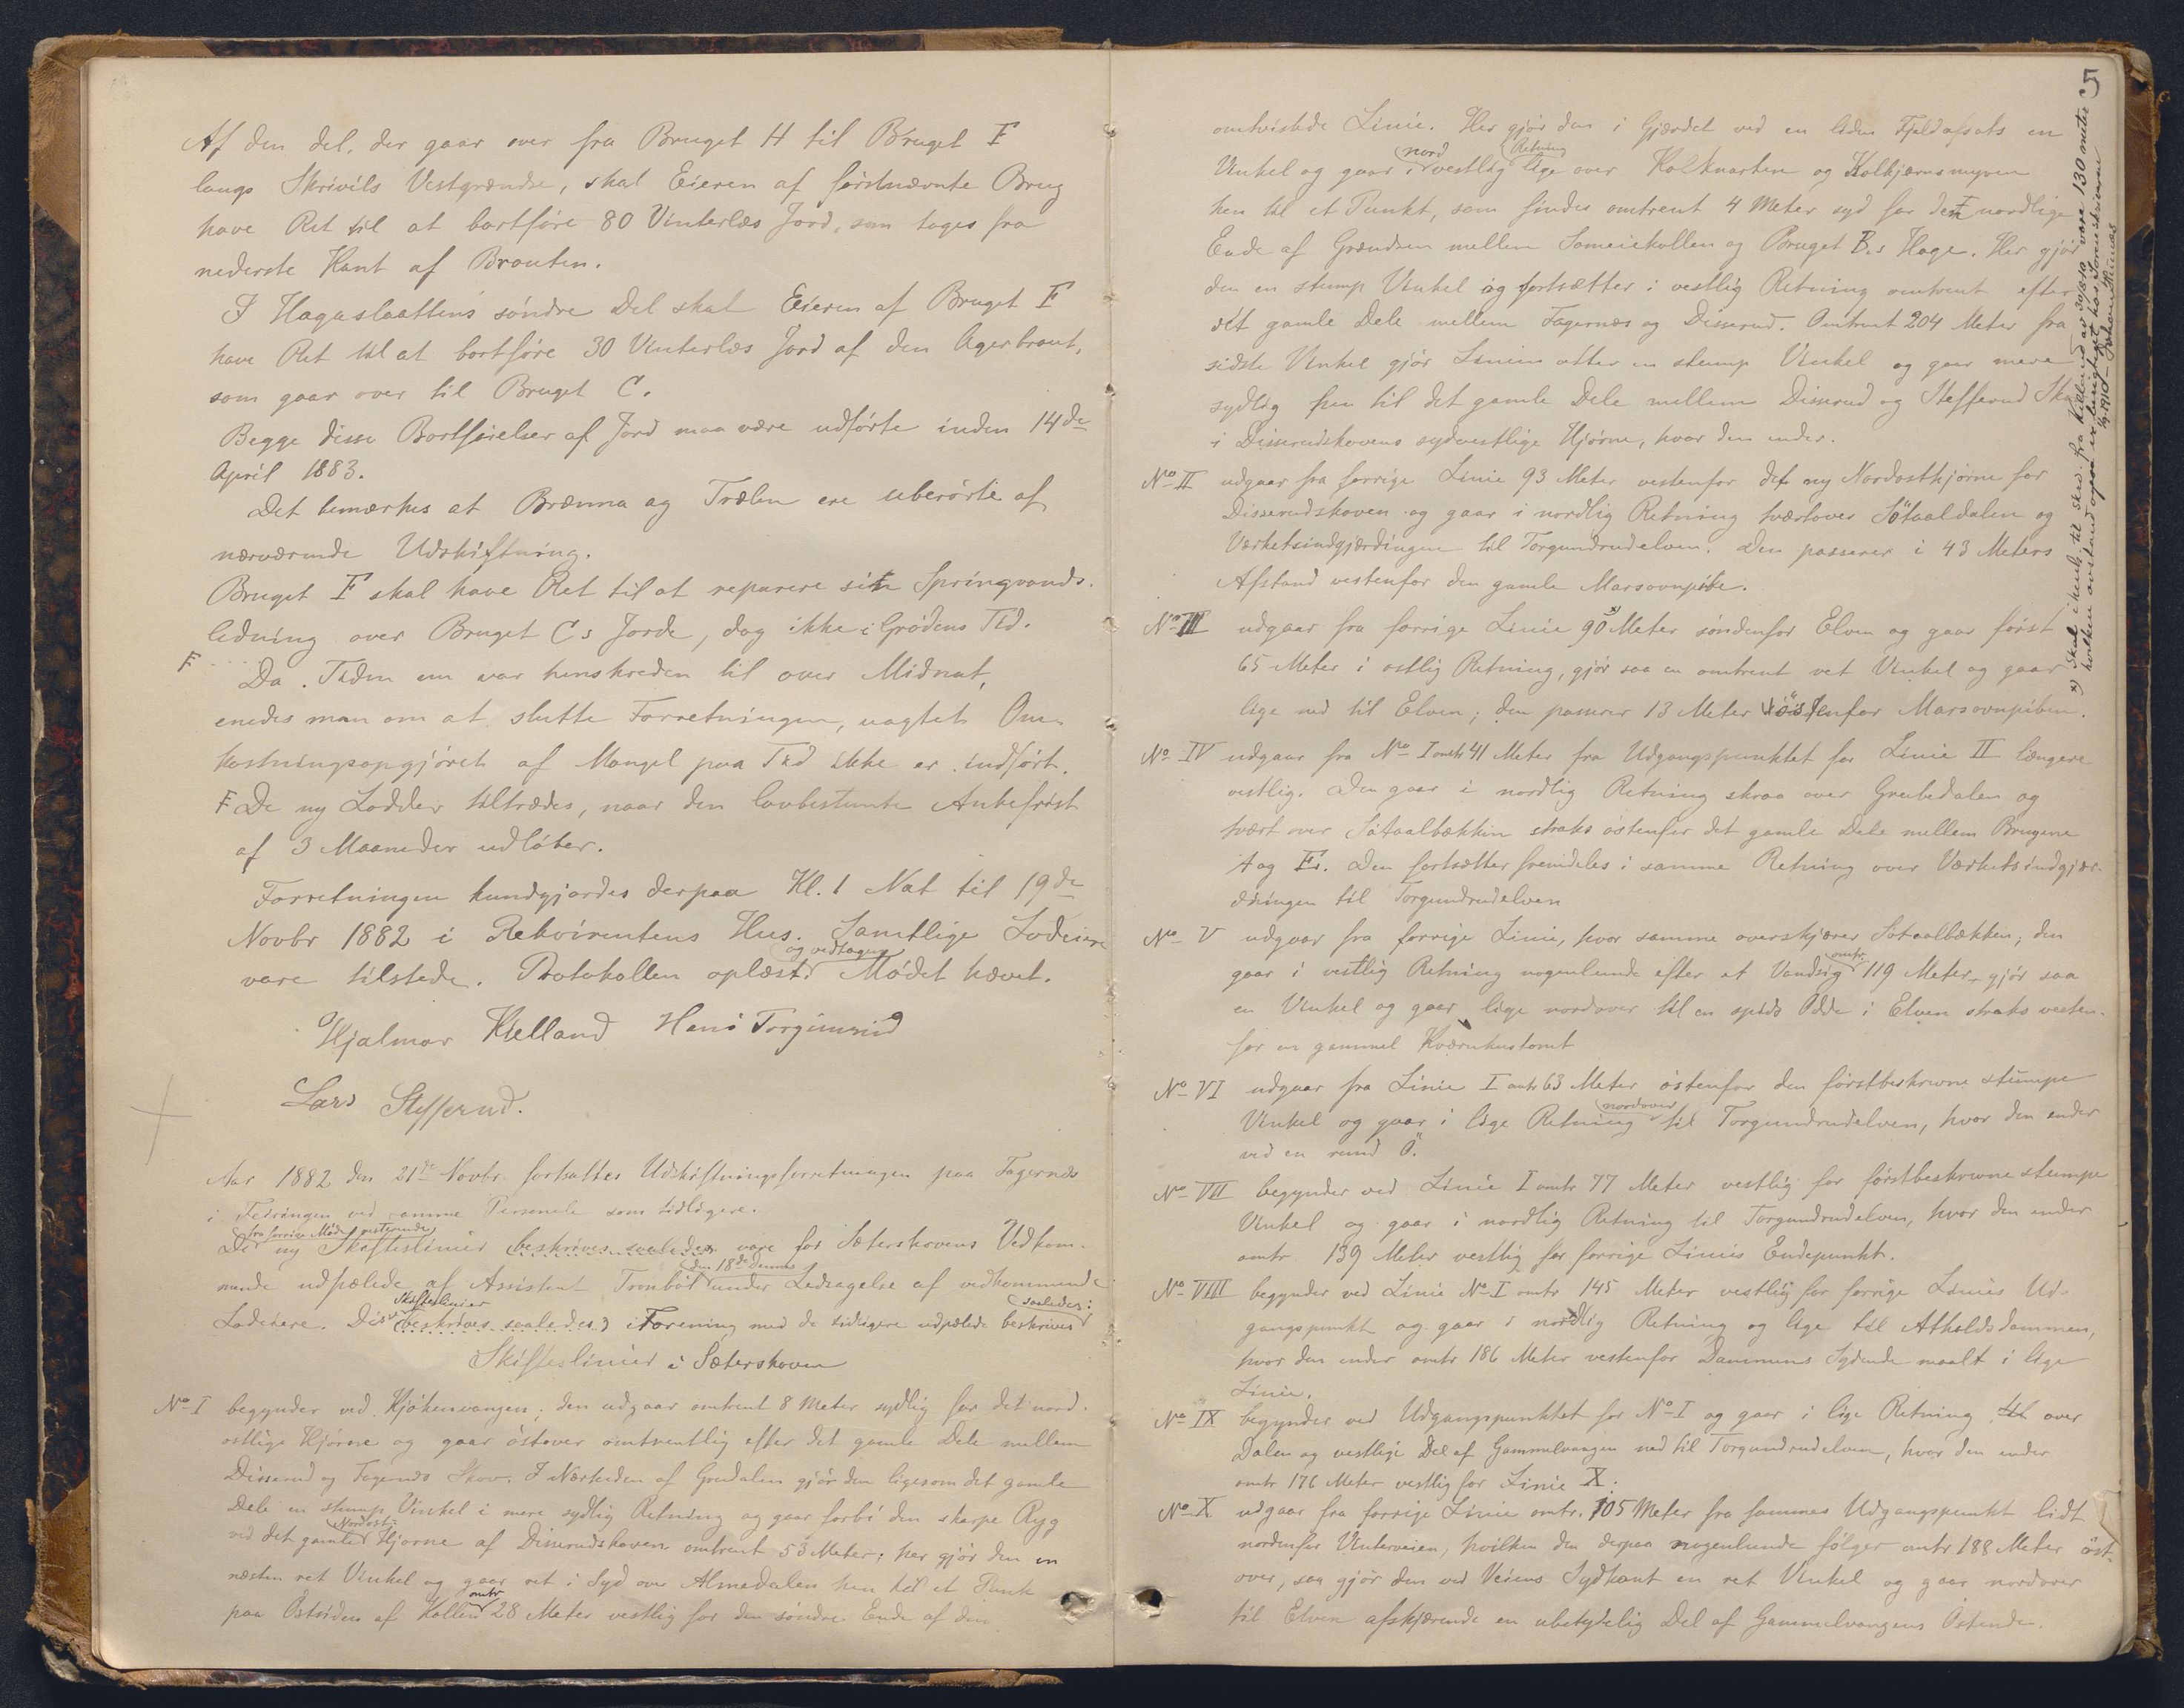 Af den del, der gaar over fra Bruget H til Bruget F
langs Skrivils Vestgrændse, skal Eieren af førstnævnte Brug
have Ret til at bortføre 80 Vinterlæs Jord, som tages fra
nederste Kant af Brauten.
I Hagaslaattens søndre Del skal Eieren af Bruget F
have Ret til at bortføre 30 Vinterlæs Jord af den Agerbraut,
som gaar over til Bruget C.
Begge disse Bortførelser af Jord maa være udførte inden 14de
April 1883.
Det bemærkes at Brænna og Trælen ere uberørte af
nærværende Udskiftning.
Bruget F skal have Ret til at reparere sin Springvands-
ledning over Bruget Cs Jorde, dog ikke i Grødens Tid.
F Da Tiden nu var henskreden til over Midnat,
enedes man om at slutte Forretningen, uagtet Om-
kostningsopgjøret af Mangel paa Tid ikke er indført.
F De ny Lodder tiltrædes, naar den lovbestemte Ankefrist
af 3 Maaneder udløber.
Forretningen kundgjordes derpaa Kl. 1 Nat til 19de
Novbr 1882 i Rekvirentens Hus. Samtlige Lodeiere
vare tilstede. Protokollen oplæst og vedtagen Mødet hævet.
Hjalmar Kielland Hans Torgimrud
Lars Stefferud.
Aar 1882 den 21de Novbr. fortsattes Udskiftningsforretningen paa Fagernæs
i Fedringen ved samme Personele som tidligere.
De fra forrige Møde resterende ny Skifteslinier beskrives saaledes vare for Sæterskovens Vedkom-
mende udpælede af Assistent Trombøl den 18de dennes under Ledsagelse af vedkommende
Lodeiere. Disse Skifteslinier beskrives saaledes i Forening med de tidligere udpælede beskrives saaledes:
Skifteslinier i Sæterskoven
No I begynder ved Kjøkenvangen; den udgaar omtrent 8 Meter sydlig for det nord-
ostlige Hjørne og gaar østover omtrentlig efter det gamle Dele mellem
Disserud og Fagernæs Skov. I Nærheden af Grudalen gjør den ligesom det gamle
Dele en stump Vinkel i mere sydlig Retning og gaar forbi den skarpe Ryg
ved det gamle Nordost-Hjørne af Disserudskoven omtrent 53 Meter; her gjør den en
næsten ret Vinkel og gaar ret i Syd over Almedalen hen til et Punk
paa Østsiden af Kollen omtr 28 Meter vestlig for den søndre Ende af den
5
omtvistede Linie. Her gjør den i Gjærdet ved en liden Fjeldafsats en
Vinkel og gaar i nordvestlig Retning lige over Kolknarten og Kolkjærnsmyren
hen til et Punkt, som findes omtrent 4 Meter syd for den nordlige
Ende af Grændsen mellem Someiekollen og Bruget B.s Hage. Her gjør
den en stump Vinkel og fortsætter i vestlig Retning omtrent efter
det gamle Dele mellem Fagernæs og Disserud. Omtrent 204 Meter fra
sidste Vinkel gjør Linien atter en stump Vinkel og gaar mere
sydlig hen til det gamle Dele mellem Disserud og Stefferud Skov
i Disserudskovens sydvestlige Hjørne, hvor den ender.
No II udgaar fra forrige Linie 93 Meter vestenfor det ny Nordosthjørne for
Disserudskoven og gaar i nordlig Retning tværtover Søtaaldalen og
Værketsindgjærdingen til Torgundrudelven. Den passerer i 43 Meters
Afstand vestenfor den gamle Marsovnpibe.
No III udgaar fra forrige Linie 90 x) Meter søndenfor Elven og gaar først
65 Meter i østlig Retning, gjør saa en omtrent ret Vinkel og gaar
lige ned til Elven; den passerer 13 Meter østenfor Marsovnpiben.
No IV udgaar fra No I omtr 41 Meter fra Udgangspunktet for Linie II længere
vestlig. Den gaar i nordlig Retning skraa over Grubedalen og
tvært over Søtaalbækken straks østenfor det gamle Dele mellem Brugene
A og Es. Den fortsætter fremdeles i samme Retning over Værketsindgjær-
dingen til Torgundrudelven
No V udgaar fra forrige Linie, hvor samme overskjærer Søtaalbækken; den
gaar i vestlig Retning nogenlunde efter et Vandsig omtr 119 Meter, gjør saa
en Vinkel og gaar lige nordover til en spids Odde i Elven straks vesten-
for en gammel Kværnhustomt
No VI udgaar fra Linie I omtr 63 Meter østenfor den førstbeskrevne stumpe
Vinkel og gaar i lige Retning nordover til Torgundrudelven, hvor den ender
ved en rund Ø.
No VII begynder ved Linie I omtr 77 Meter vestlig for førstbeskrevne stumpe
Vinkel og gaar i nordlig Retning til Torgundrudelven, hvor den ender
omtr 139 Meter vestlig for forrige Linies Endepunkt.
No VIII begynder ved Linie No I omtr 145 Meter vestlig for forrige Linies Ud-
gangspunkt og gaar i nordlig Retning og lige til Atholdsdammen,
hvor den ender omtr 186 Meter vestenfor Dammens Sydende maalt i lige
Linie.
No IX begynder ved Udgangspunktet for No I og gaar i lige Retning til over
Dalen og vestlige Del af Gammelvangen ned til Torgundrudelven, hvor den ender
omtr 176 Meter vestlig for Linie X.
No X udgaar fra forrige Linie omtr. 105 Meter fra sammes Udgangspunkt lidt
nordenfor Vinterveien, hvilken den derpaa nogenlunde følger omtr 188 Meter øst-
over, saa gjør den ved Veiens Sydkant en ret Vinkel og gaar nordover
til Elven afskjærende en ubetydelig Del af Gammelvangens Østende.
x) Skal ifølge skr. fra Kielland av 30/8 10 være 130 meter
hvilken avstand ogsaa er
1910 Johan